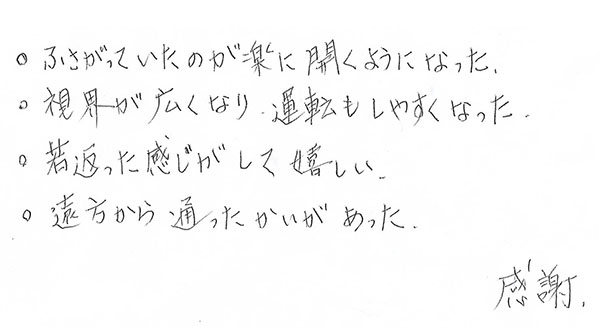 ○ ふさがっていたのが楽に開くようになった.
○ 視界が広くなり.運転もしやすくなった.
○ 若返った感じがして嬉しい.
○ 遠方から通ったかいがあった.
感謝.